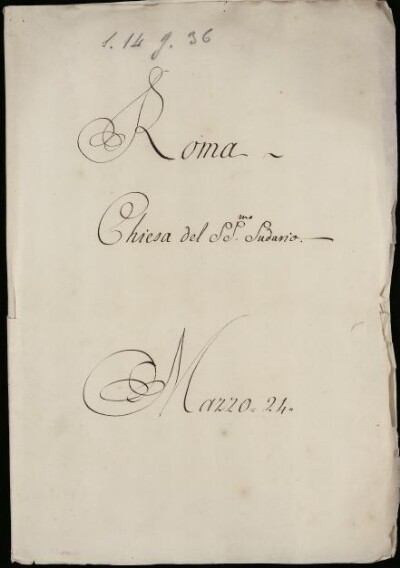 s. 14 g. 36
Roma ~
Chiesa del SS.mo Sudario.
Mazzo. 24.